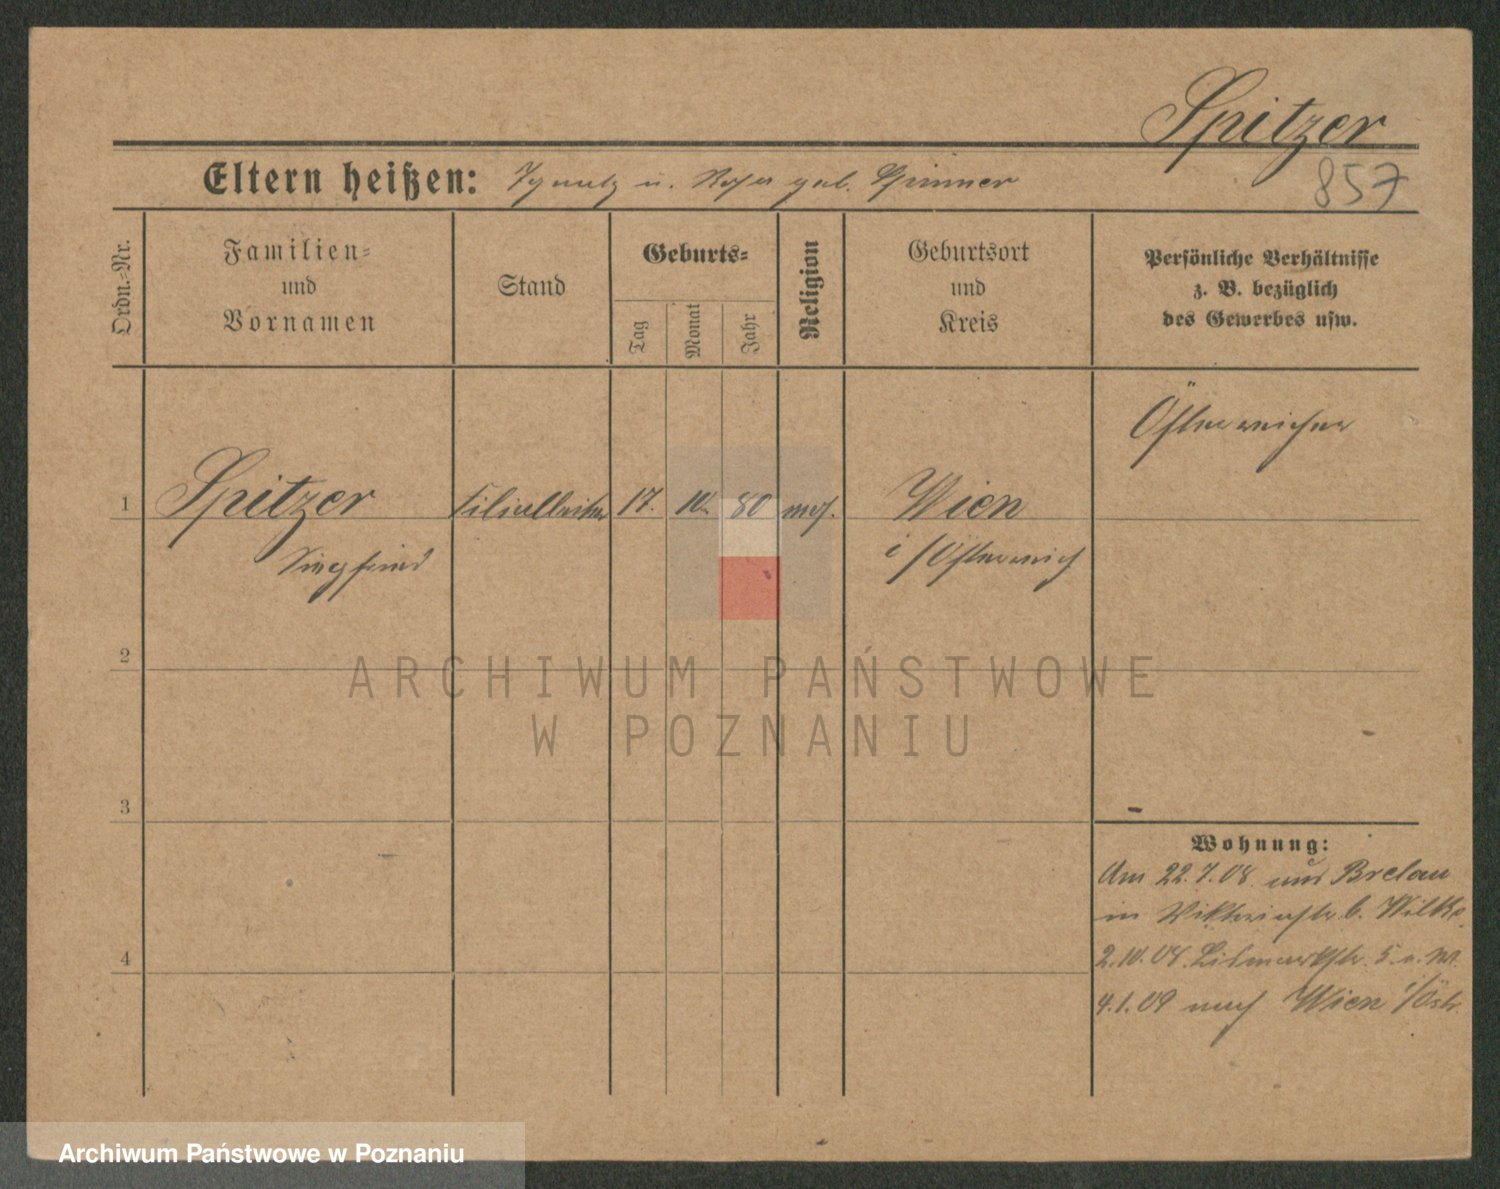 Spitzer
857
Eltern heißen: Ignatz u. Rosa geb. Spinner
Ordn.-Nr.
Familien-
und
Vornamen
Stand
Geburts-
Tag
Monat
Jahr
Religion
Geburtsort
und
Kreis
Persönliche Verhältnisse
z. B. bezüglich
des Gewerbes usw.
Österreicher
1 Spitzer Filialleiter 17. 10. 80 mos. Wien
Siegfried i/Österreich
2
3
4
Wohnung:
Am 22.7.08. aus Breslau
in Viktoriastr b. Wilke
2.10.08. Bismarkstr. 5
4.1.09 nach Wien i/Östr.
ARCHIWUM PAŃSTWOWE
W POZNANIU
Archiwum Państwowe w Poznaniu